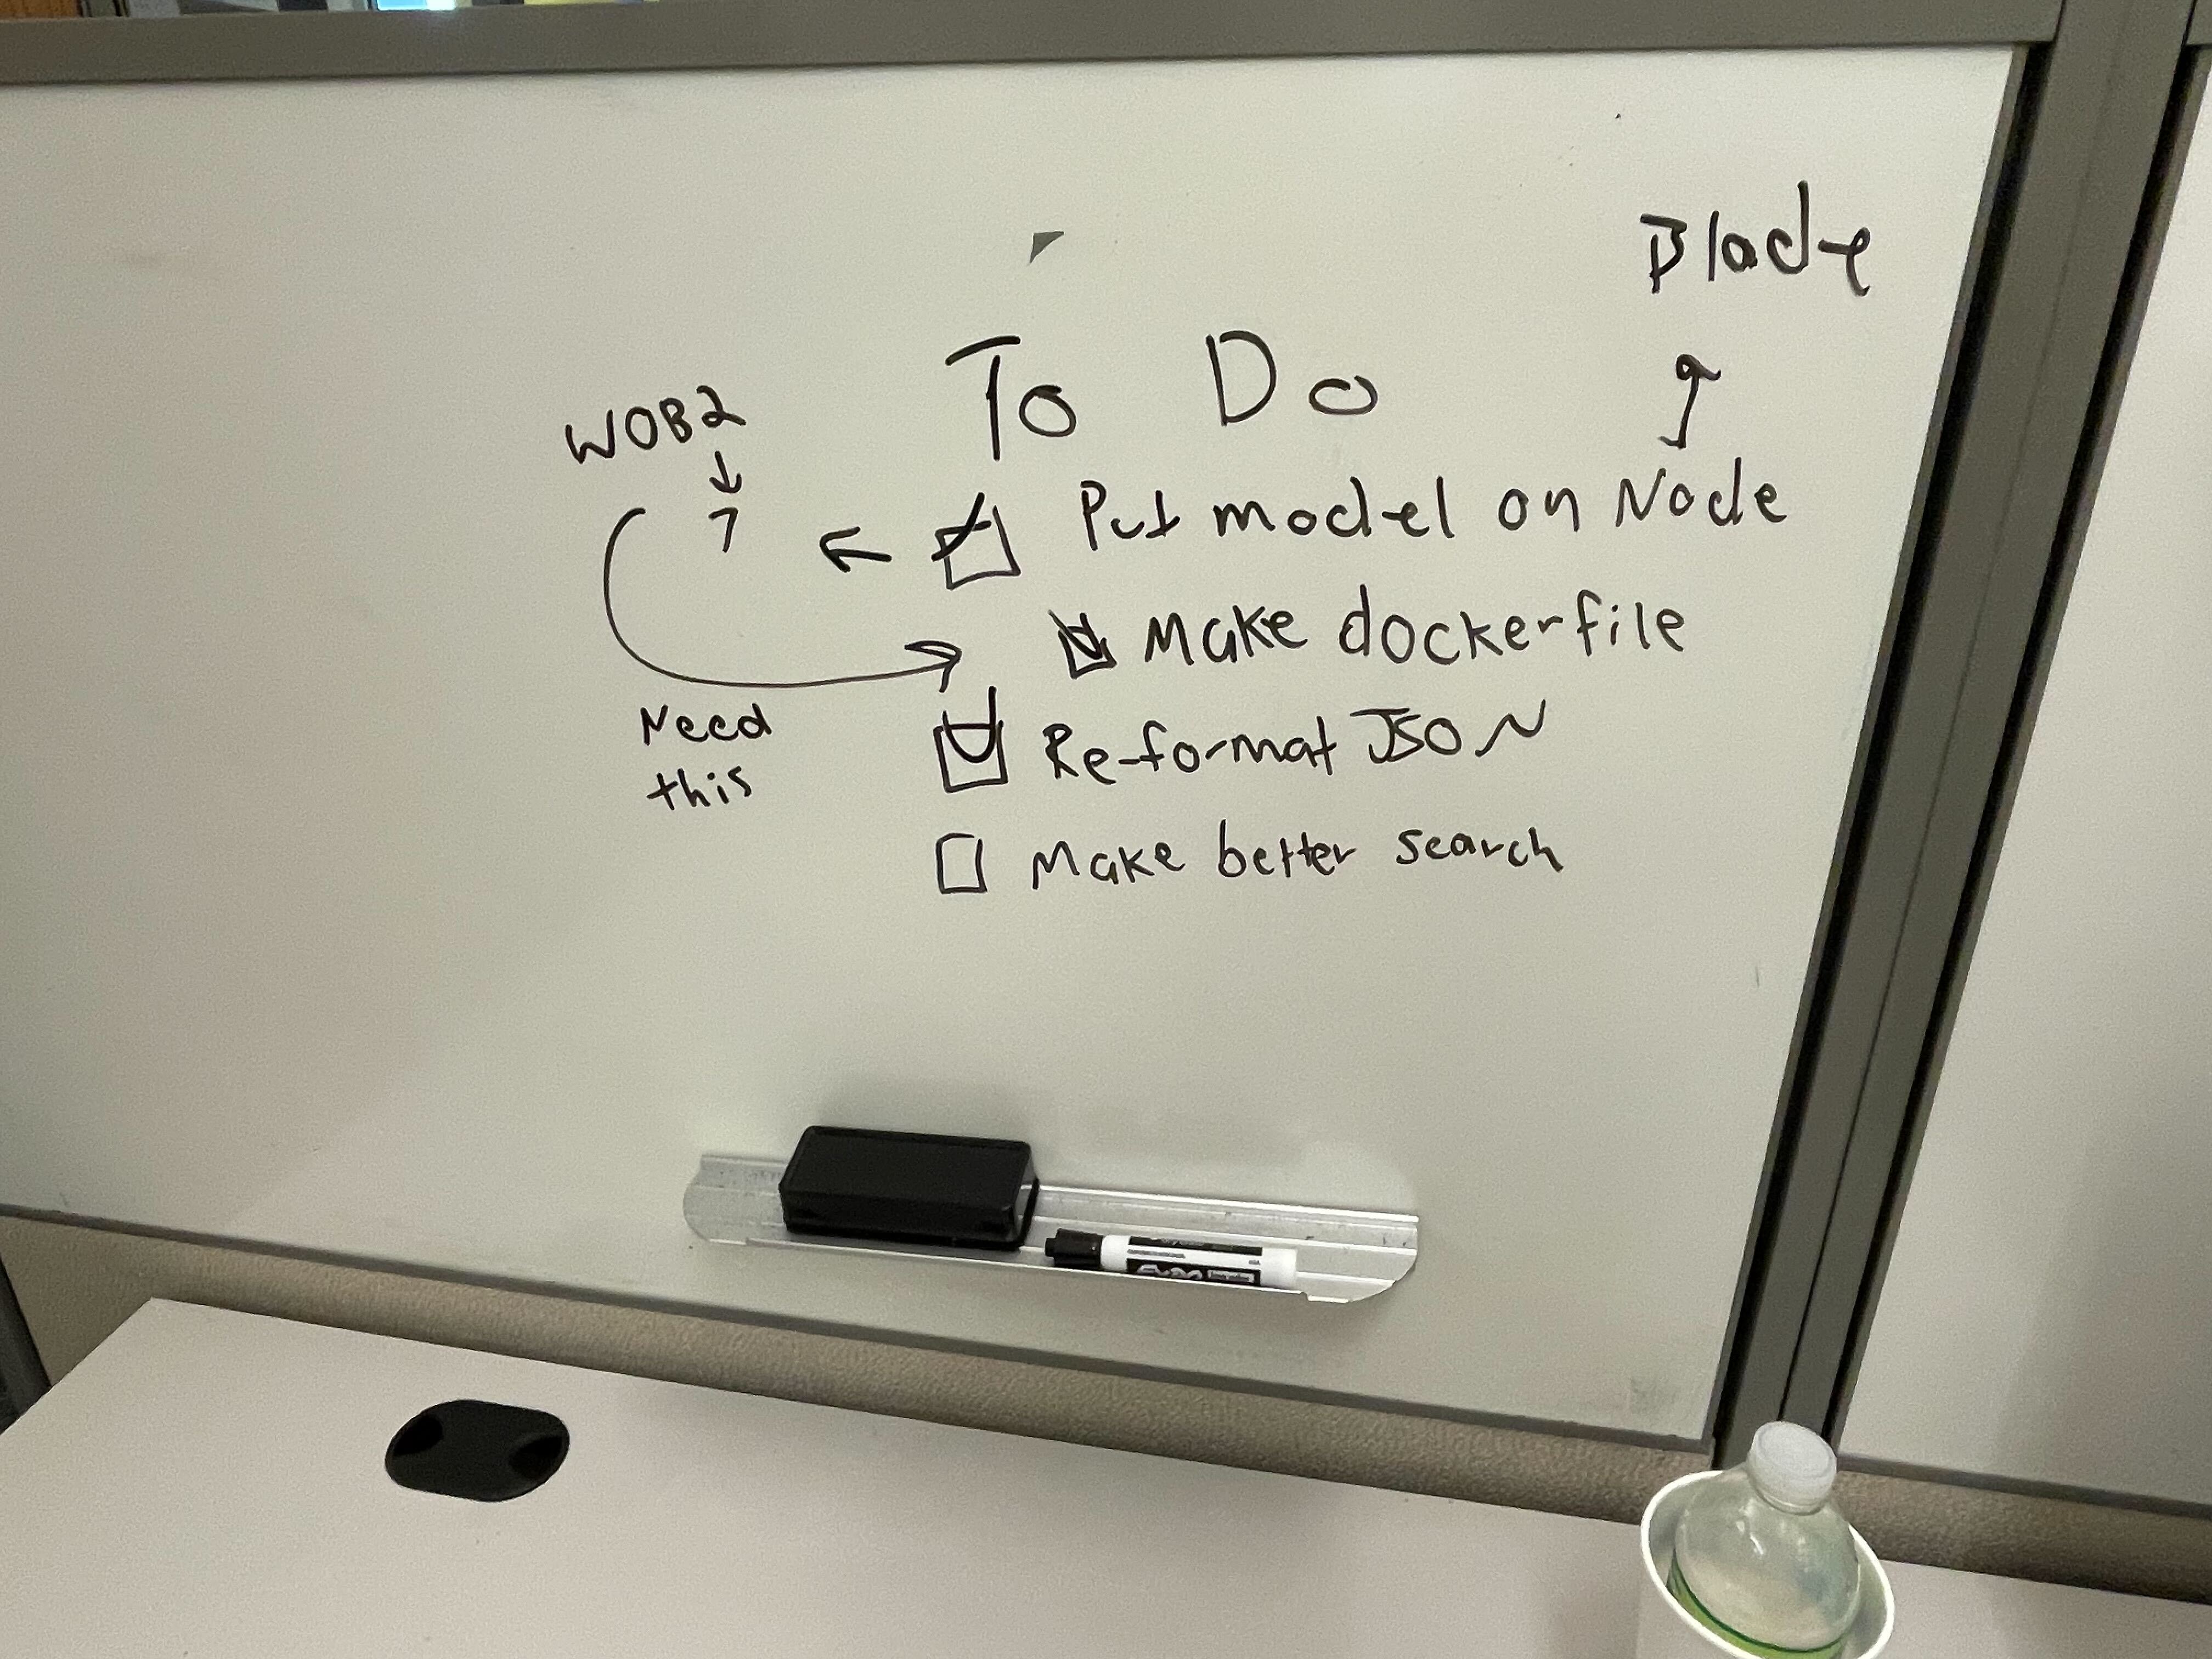 Blade
To Do
WOB2
7
Put model on Node
Make dockerfile
Need
this
Re-format JSON
Make better search
EXPO